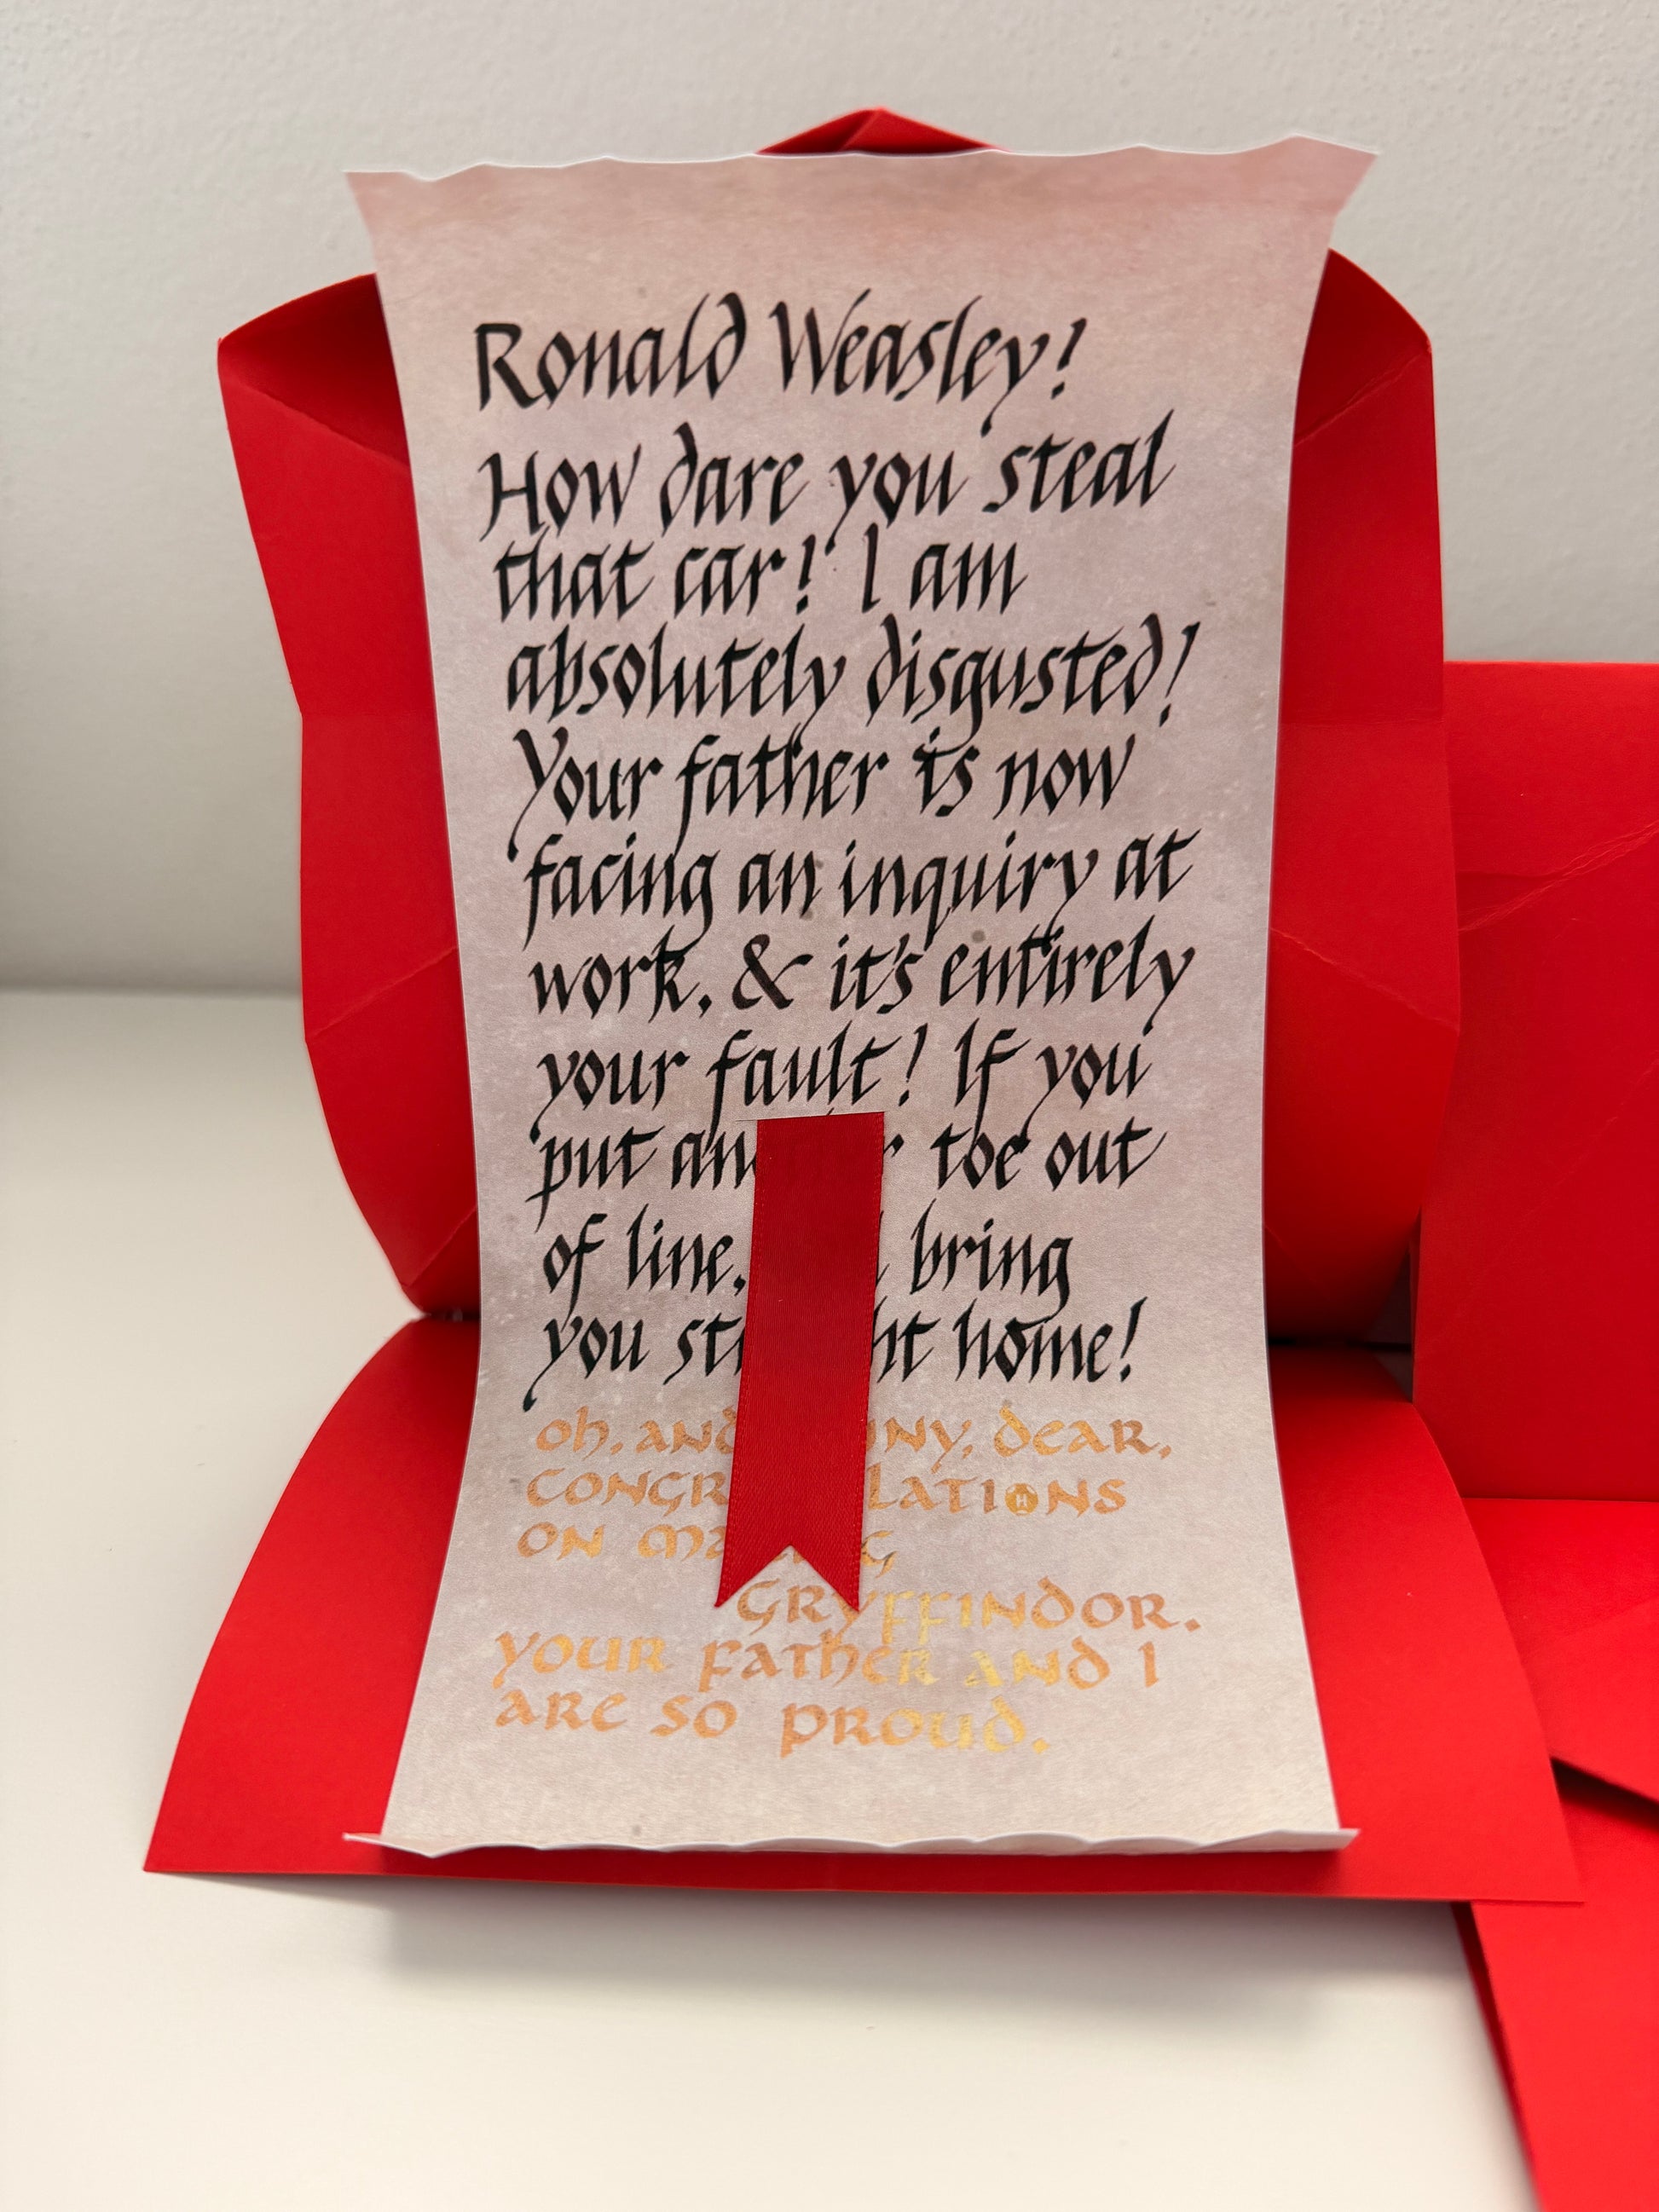 Ronald Weasley!
How dare you steal
that car! I am
absolutely disgusted!
Your father is now
facing an inquiry at
work, & it's entirely
your fault! If you
put toe out
of line, bring
you home!
oh, and dear,
ON
GRYFFINDOR.
YOUR FATHER AND I
ARE SO PROUD.